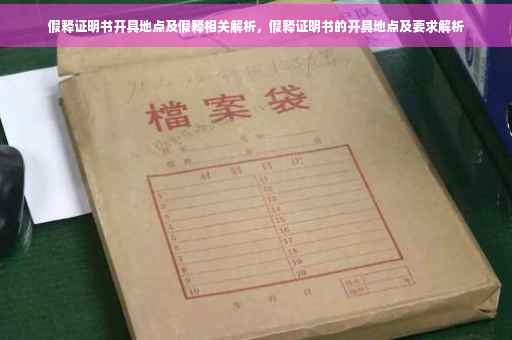 假释证明书开具地点及假释相关解析，假释证明书的开具地点及要求解析
檔案袋
材料目次
1 11
2 12
3 13
4 14
5 15
6 16
7 17
8 18
9 19
10 20
年 月 日